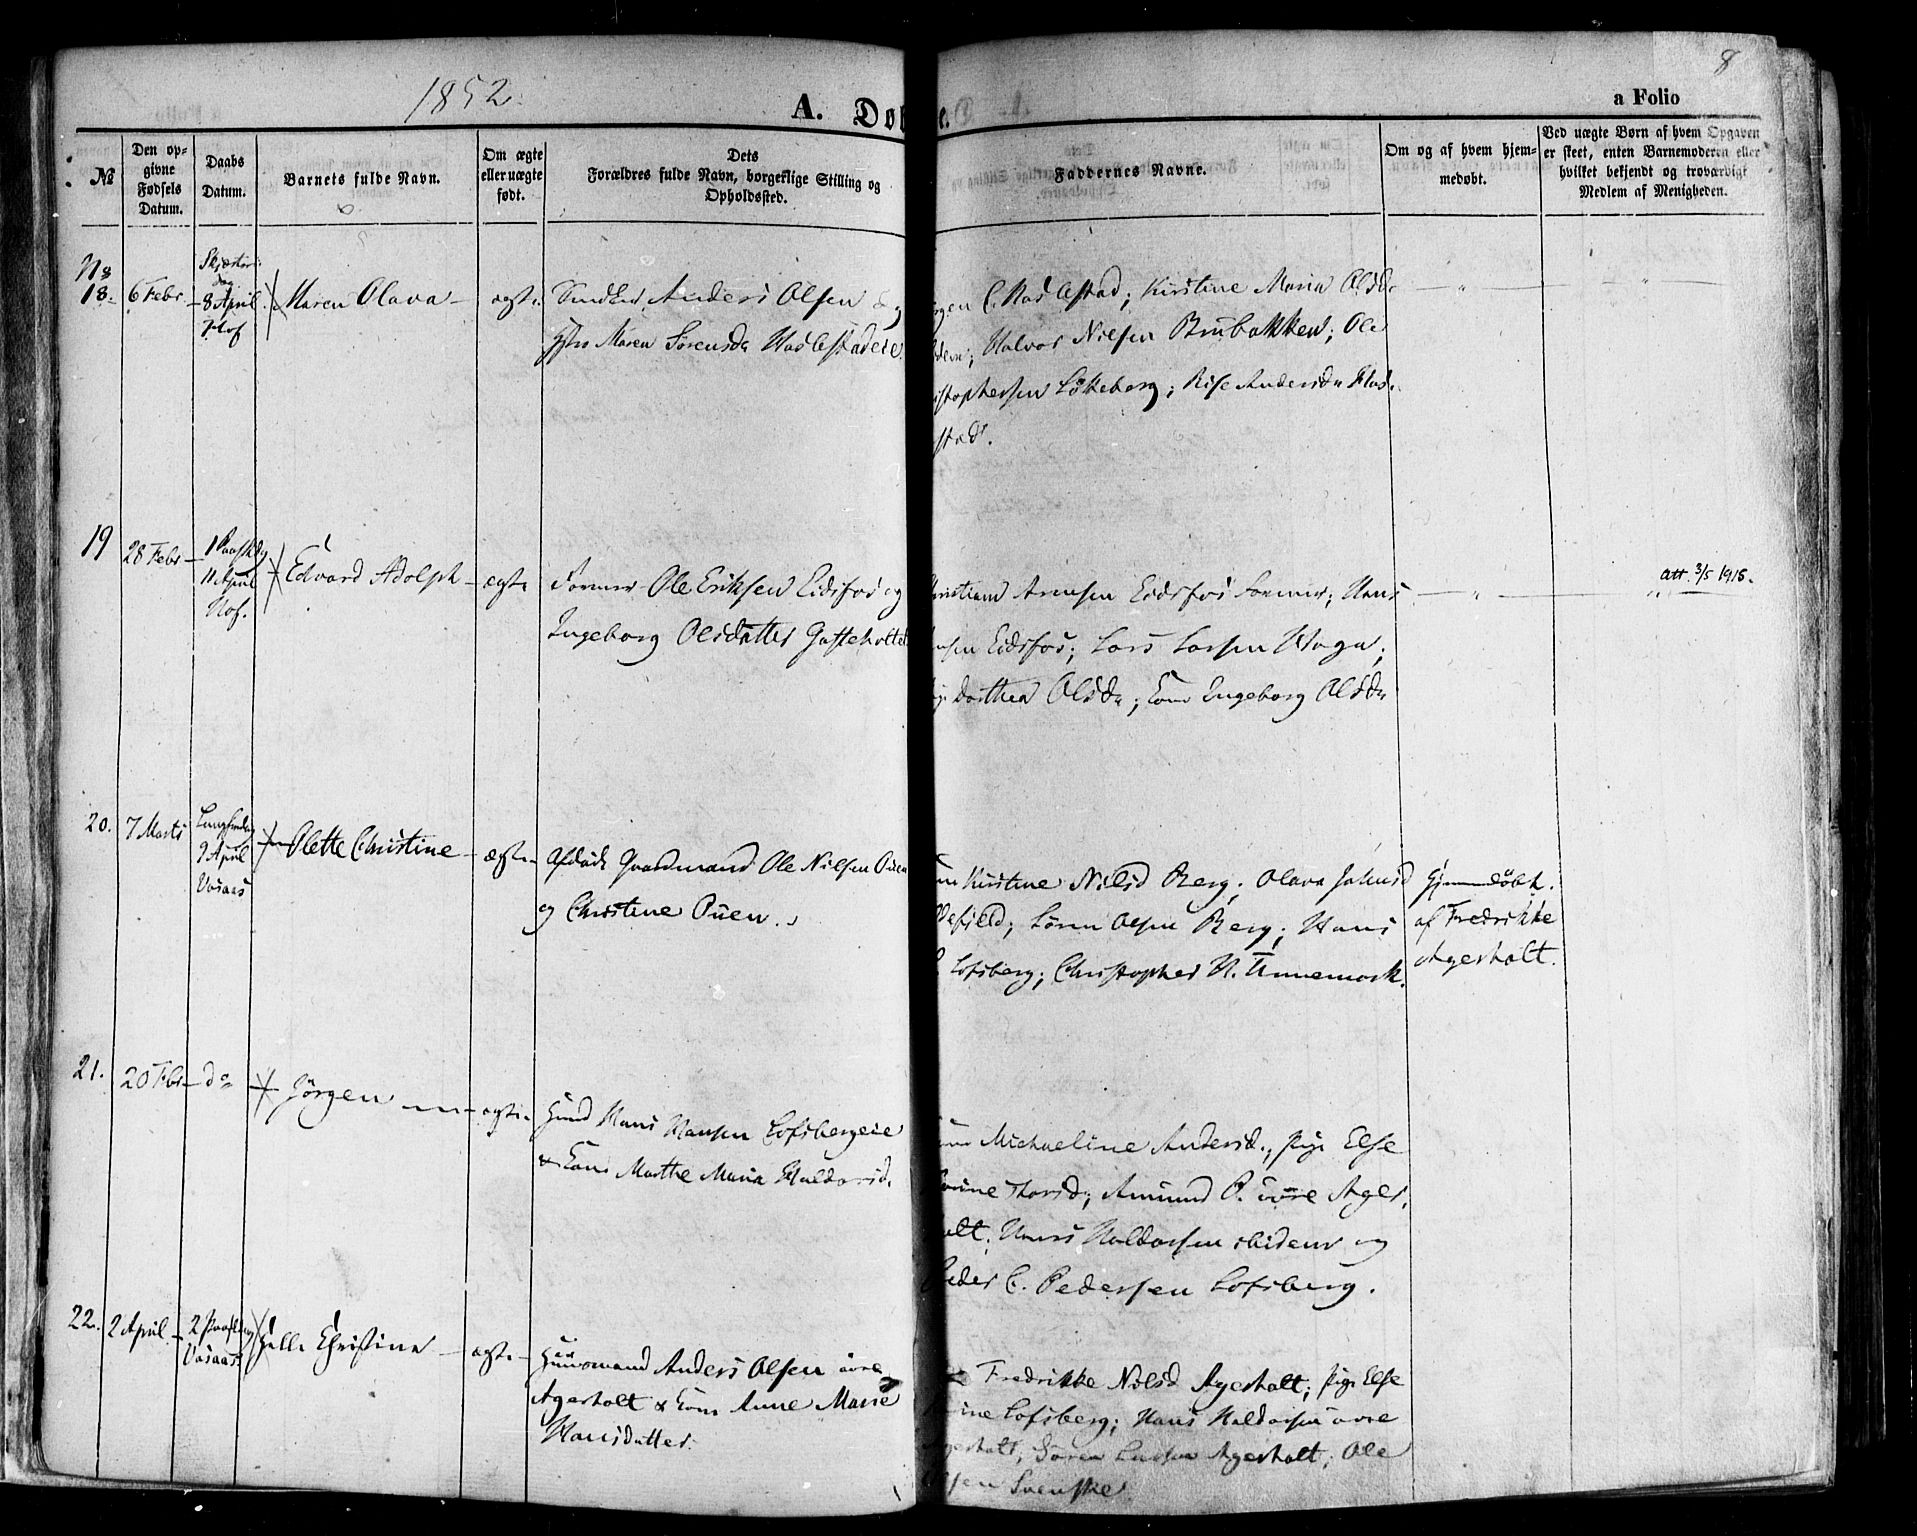 8
1852.
A. Døb
e.
a Folio
№
Den op-
givne
Fødsels
Datum.
Daabs
Datum.
Barnets fulde Navn.
Om ægte
eller uægte
født.
Dets
Forældres fulde Navn, borgerlige Stilling og
Opholdssted.
Faddernes Navne.
Om og af hvem hjem-
medøbt.
Ved uægte Børn af hvem Opgaven
er skeet, enten Barnemoderen eller
hvilket bekjendt og troværdigt
Medlem af Menigheden.
No
18. 6 Febr. Skjærtors
dag
8 April
Hof
Maren Olava
ægte
Anders Olsen &
Maren Sörensdr Haslestadeie
C. Haslestad; Kirstine Maria Olsdr
Halvor Nielsen Brubakken; Ole
istophersen Lökeberg; Andersdr
stad.
19 28 Febr 1 Paaskedag
11 April
Hof.
Edvard Adolph
ægte
Former Ole Eriksen Eidsfos og
Ingeborg Olsdatter
ristian Arnesen Eidsfos Former; Hans
nsen Eidsfos; Lars Larsen Haga;
Dorthea Olsdr; Kone Ingeborg Olsdr
att. 3/5 1918.
20. 7 Marts Langfredag
9 April
Vasaas
Olette Christine
ægte
Afdöde Gaardmand Ole Nielsen Puen
og Christine Puen.
Kirstine Nilsd Berg; Olava
fjeld; Sören Olsen Berg; Hans
Lofsberg; Christopher N. Unnemork.
Hjemmedöbt.
af Fredrikke
Agerholt.
21. 20 Feb do
Jörgen
ægte
Huusmd Hans Hansen Lofsbergeie
& Kone Marthe Maria Haldorsd.
Michaeline Andersd.; Pige Else
rine Thorsd; Amund P. övre Ager
holt; Hans Haldorsen og
Peder C. Pedersen Lofsberg.
22. 2 April 2 Paaskedag
Vasaas
Helle Christine
ægte
Huusmand Anders Olsen övre
Agerholt & Kone Anne Marie
Hansdatter.
Fredrikke Nilsd Agerholt; Pige Else
rine Lofsberg; Hans Haldorsen övre
gerholt; Sören Larsen Agerholt; Ole
sen Svenske